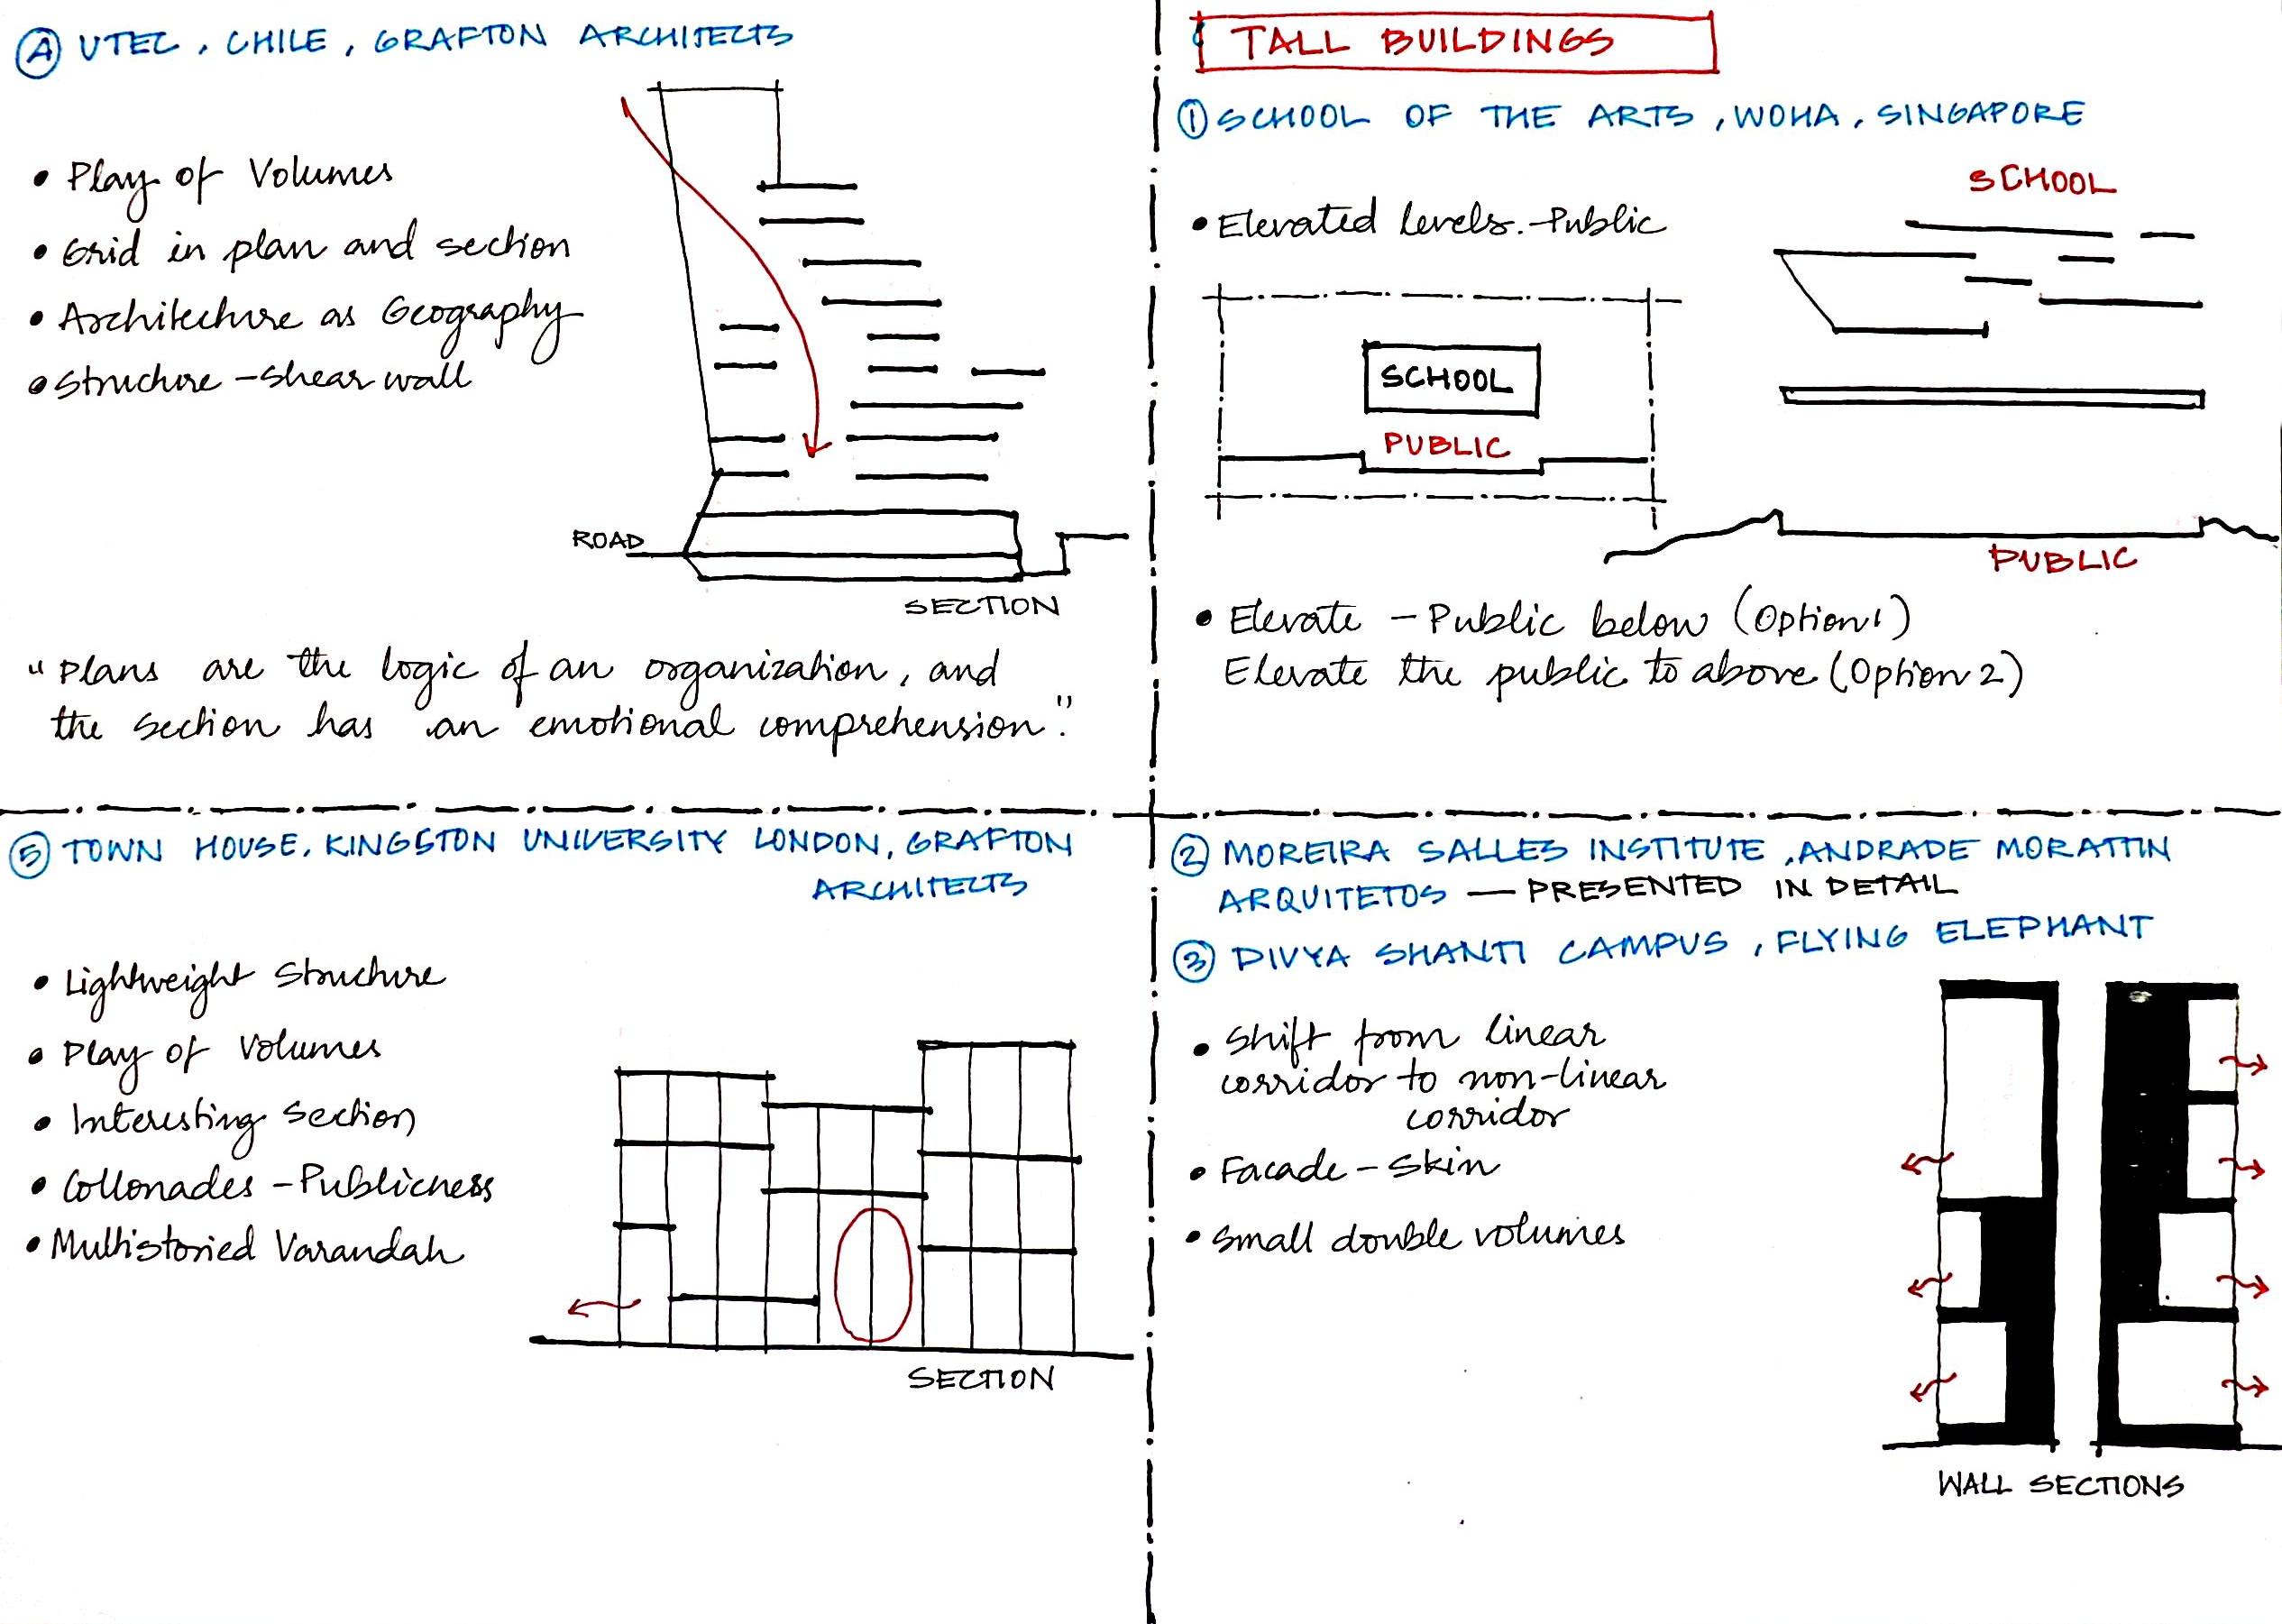 Ⓐ UTEC, CHILE, GRAFTON ARCHITECTS
• Play of Volumes
• Grid in plan and section
• Architecture as Geography
• Structure - Shear wall
ROAD
SECTION
"Plans are the logic of an organization, and
the section has an emotional comprehension."
TALL BUILDINGS
① SCHOOL OF THE ARTS, WOHA, SINGAPORE
• Elevated levels. - Public
SCHOOL
PUBLIC
SCHOOL
PUBLIC
• Elevate - Public below (Option 1)
Elevate the public to above (Option 2)
⑤ TOWN HOUSE, KINGSTON UNIVERSITY LONDON, GRAFTON
ARCHITECTS
• Lightweight Structure
• Play of Volumes
• Interesting Section
• Collonades - Publicness
• Multistoried Varandah
SECTION
② MOREIRA SALLES INSTITUTE, ANDRADE MORATTIN
ARQUITETOS — PRESENTED IN DETAIL
③ DIVYA SHANTI CAMPUS, FLYING ELEPHANT
• Shift from linear
corridor to non-linear
corridor
• Facade - Skin
• Small double volumes
WALL SECTIONS